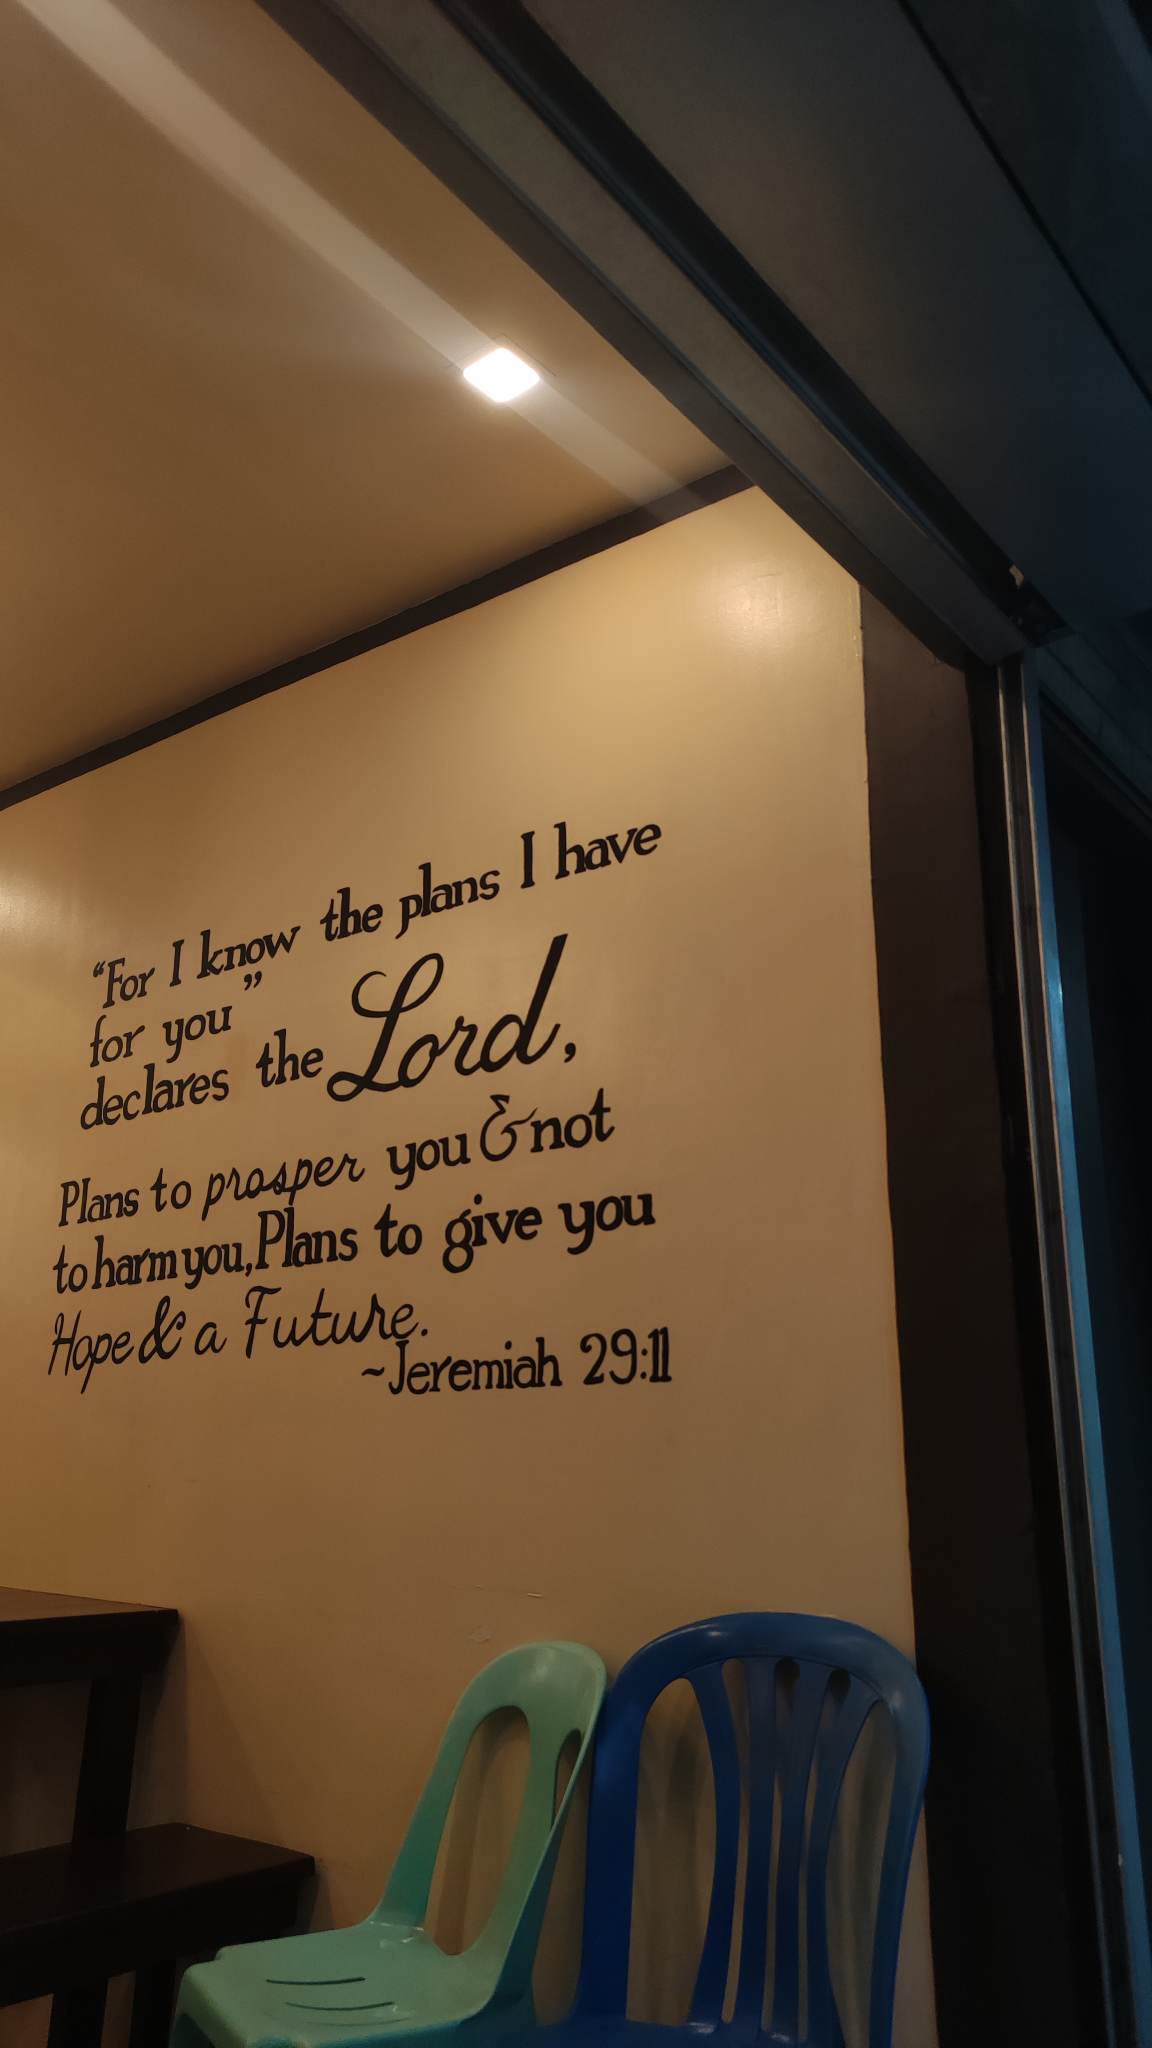 “For I know the plans I have
for you”
declares the Lord,
Plans to prosper you & not
to harm you, Plans to give you
Hope & a Future.
~Jeremiah 29:11